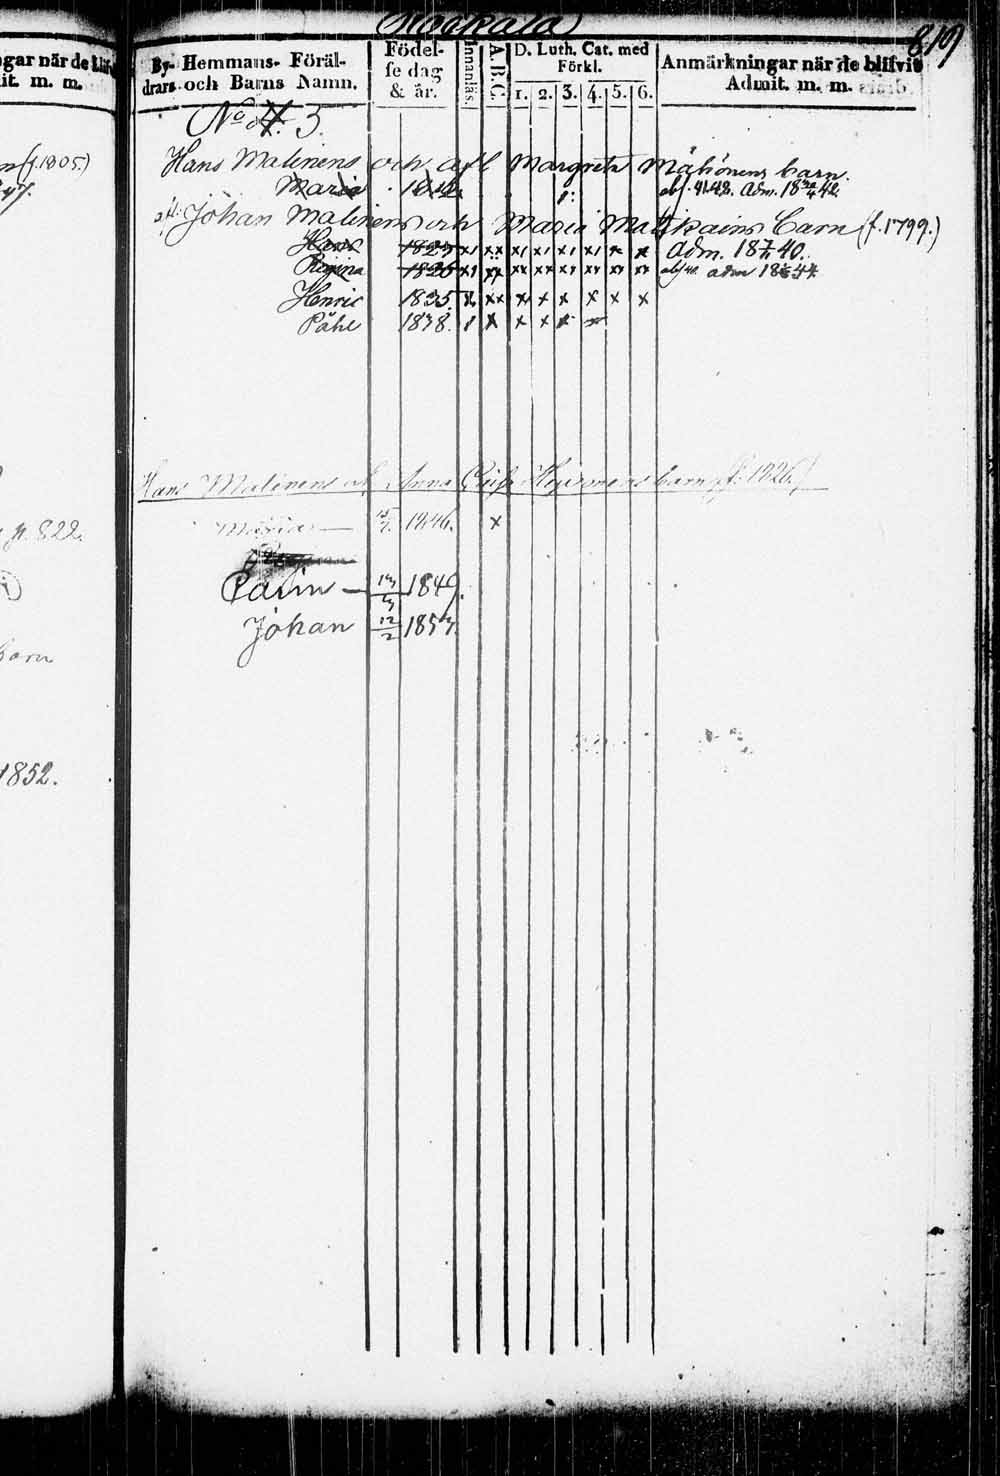 Koskala
819
gar när de blifv
it. m. m.
(f. 1805.)
47.
p. 822.
barn
1852.
By- Hemmans- Föräl-
drars och Barns Namn.
Födel-
se dag
& år.
Innanläs.
A.B.C.
D. Luth. Cat. med
Förkl.
1. 2. 3. 4. 5. 6.
Anmärkningar när de blifvit
Admit. m. m.
No 4. 3.
Hans Malinens och afl Margreta Mähönens barn.
Maria
afl: Johan Malinens och Maria Matikains barn (f. 1799.)
Hans 1823 x1 xx x1 x1 x1 x1 x x Adm. 18 40.
Regina 1826 x1 xx xx xx xx xx xx xx
Henric 1835. x xx x x x x x x
Påhl 1838. x x x
Hans Malinens och Anna barn (f: 1826.)
Maria — 1846. x
Carin — 13/3 1849.
Johan 12/2 1853.